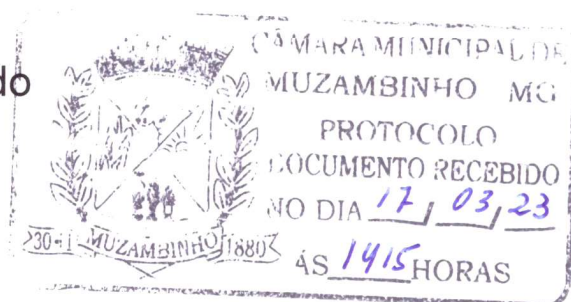 do
CÂMARA MUNICIPAL DE
MUZAMBINHO MG
PROTOCOLO
DOCUMENTO RECEBIDO
NO DIA 17 / 03 / 23
ÀS 1415 HORAS
30-1 MUZAMBINHO 1880